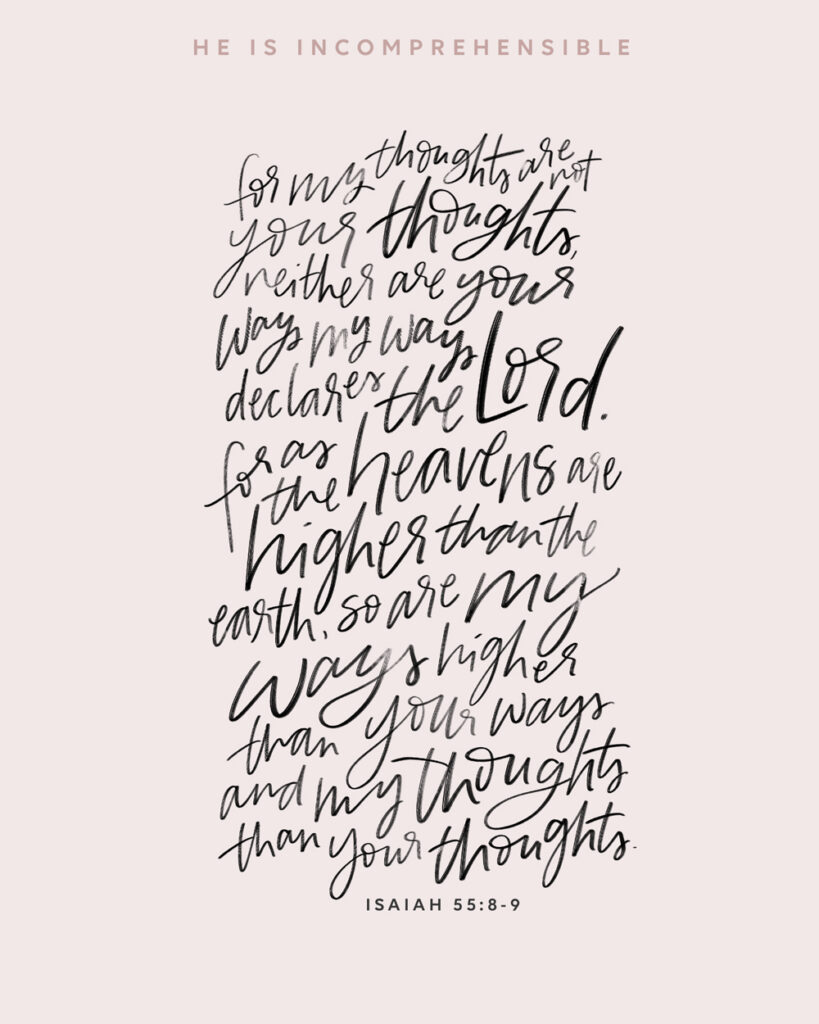 HE IS INCOMPREHENSIBLE
for my thoughts are not
your thoughts,
neither are your
ways my ways
declares the Lord.
for as
the heavens are
higher than the
earth, so are my
ways higher
than your ways
and my thoughts
than your thoughts.
ISAIAH 55:8-9